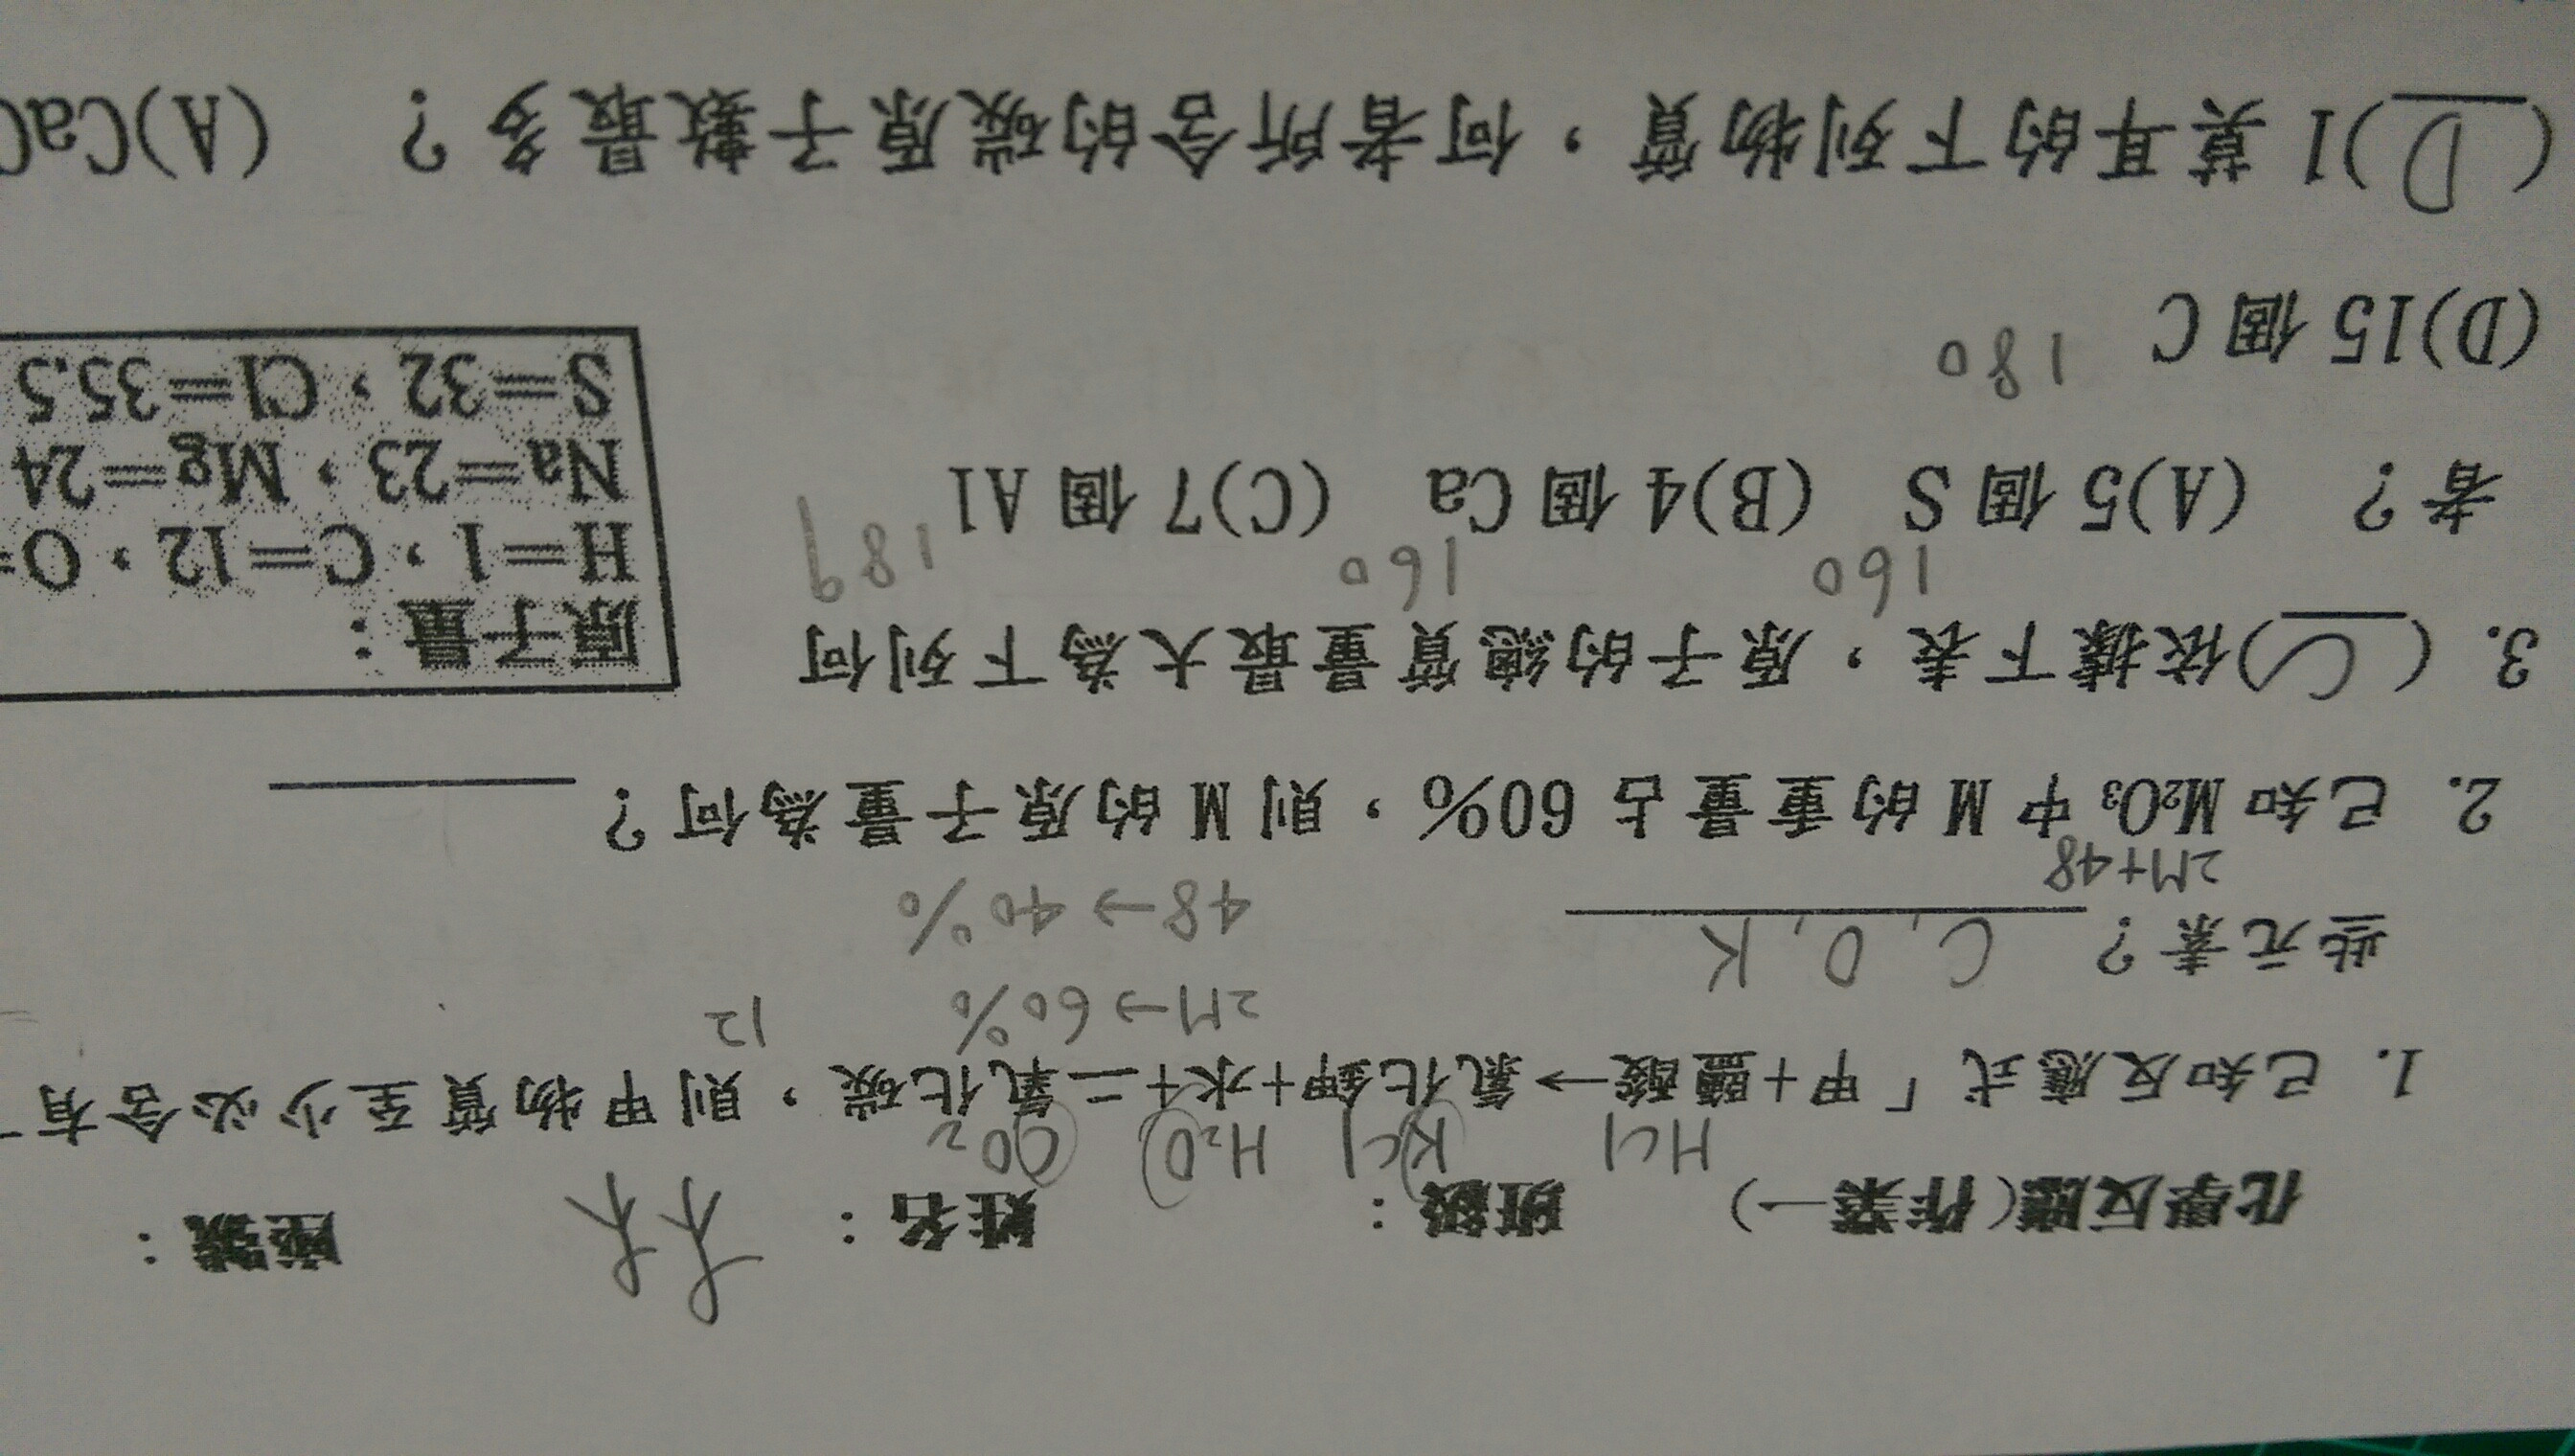 化學反應(作業一) 班級： 姓名： 座號：
HCl KCl H₂O CO₂
1. 已知反應式「甲+鹽酸→氯化鉀+水+二氧化碳，則甲物質至少必含有
些元素？ C, O, K
12
2M→60%
48→40%
2M+48
2. 已知 M₂O₃ 中 M 的重量占 60%，則 M 的原子量為何？
3. (C)依據下表，原子的總質量最大為下列何
160 160 189
者？ (A)5 個 S (B)4 個 Ca (C)7 個 Al
(D)15 個 C 180
原子量：
H＝1，C＝12，O
Na＝23，Mg＝24
S＝32，Cl＝35.5
(D)1 莫耳的下列物質，何者所含的碳原子數最多？ (A)CaC